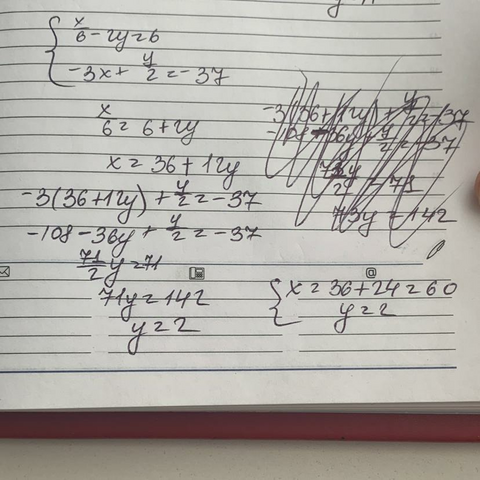 x/6 - 2y = 6
-3x + y/2 = -37
x/6 = 6 + 2y
x = 36 + 12y
-3(36+12y) + y/2 = -37
-108 - 36y + y/2 = -37
71/2 y = 71
71y = 142
y = 2
73y = 142
x = 36 + 24 = 60
y = 2